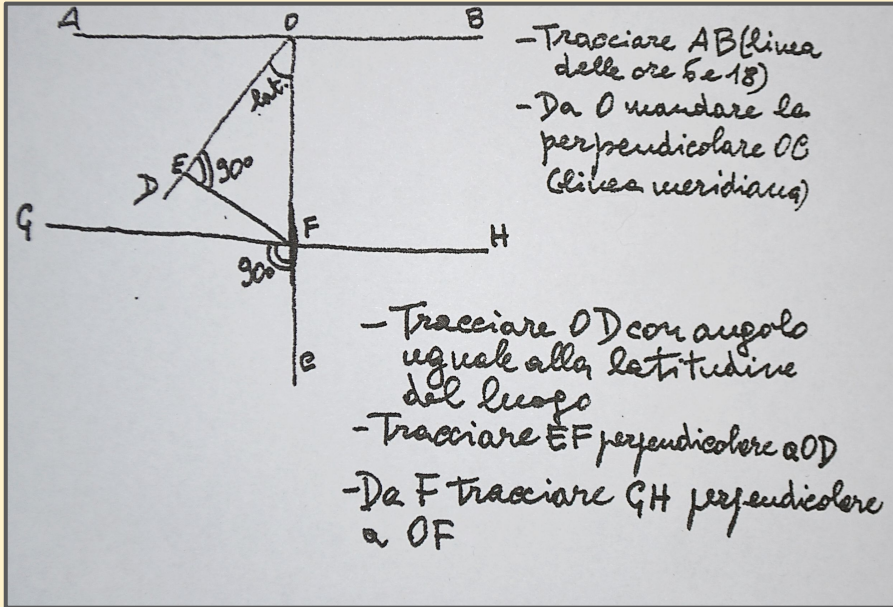 A O B
lat.
E 90°
D
G F H
90°
C
- Tracciare AB (linea
delle ore 6 e 18)
- Da O mandare la
perpendicolare OC
(linea meridiana)
- Tracciare OD con angolo
uguale alla latitudine
del luogo
- Tracciare EF perpendicolare a OD
- Da F tracciare GH perpendicolare
a OF